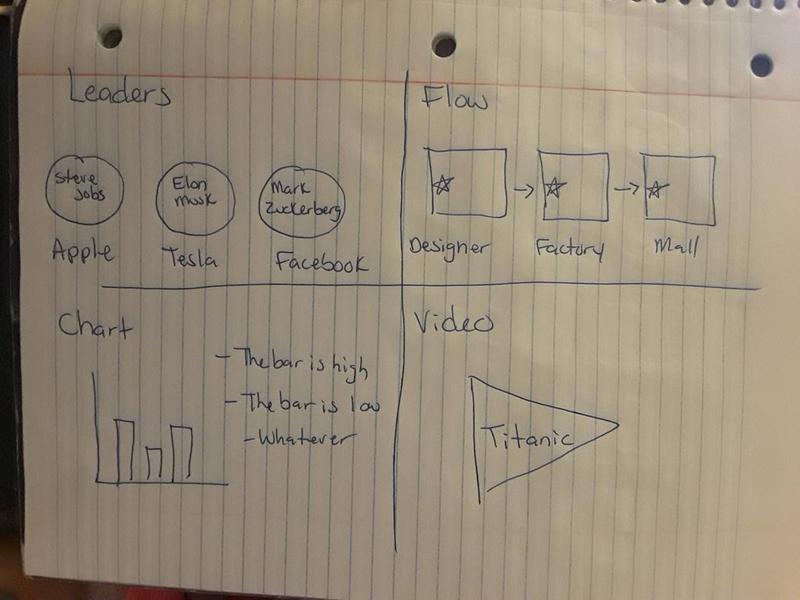 Leaders
Steve
Jobs
Elon
musk
Mark
Zuckerberg
Apple
Tesla
Facebook
Flow
Designer
Factory
Mall
Chart
- The bar is high
- The bar is low
- Whatever
Video
Titanic